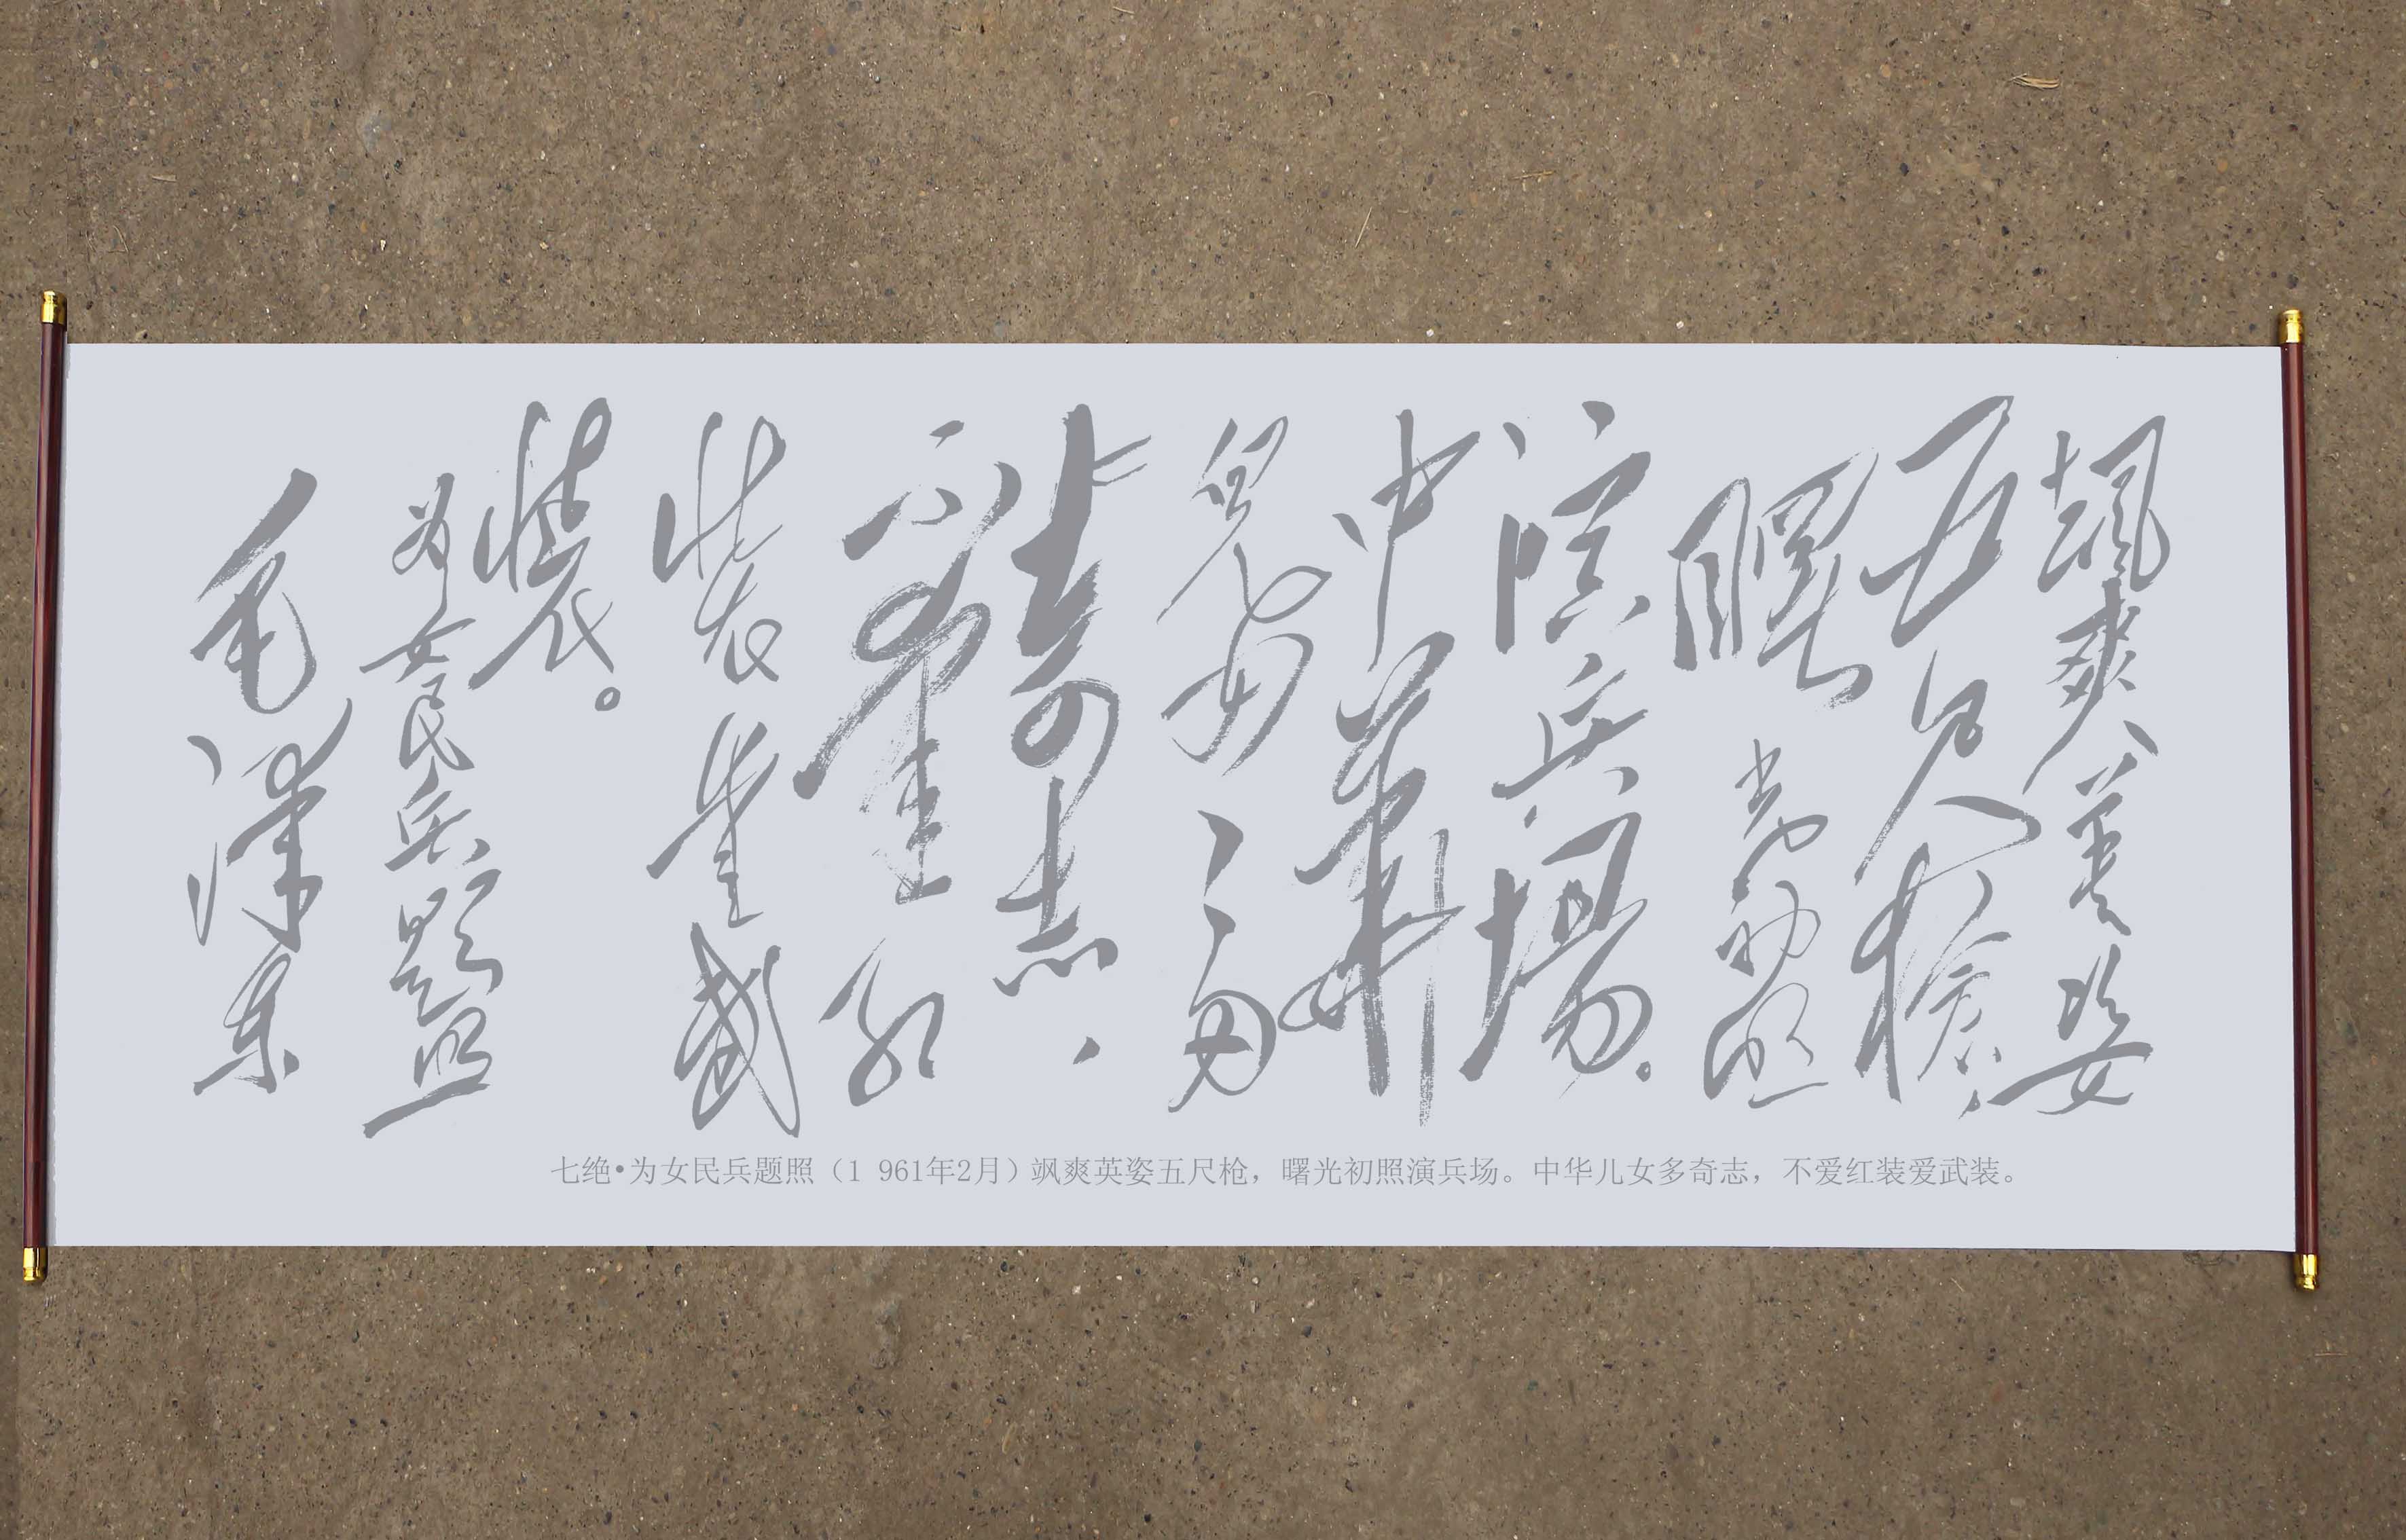 飒爽英姿
五尺枪，
曙光初照
演兵场。
中华
儿女多
奇志，
不爱红
装爱武
装。
为女民兵题照
毛泽东
七绝•为女民兵题照（1 961年2月）飒爽英姿五尺枪，曙光初照演兵场。中华儿女多奇志，不爱红装爱武装。